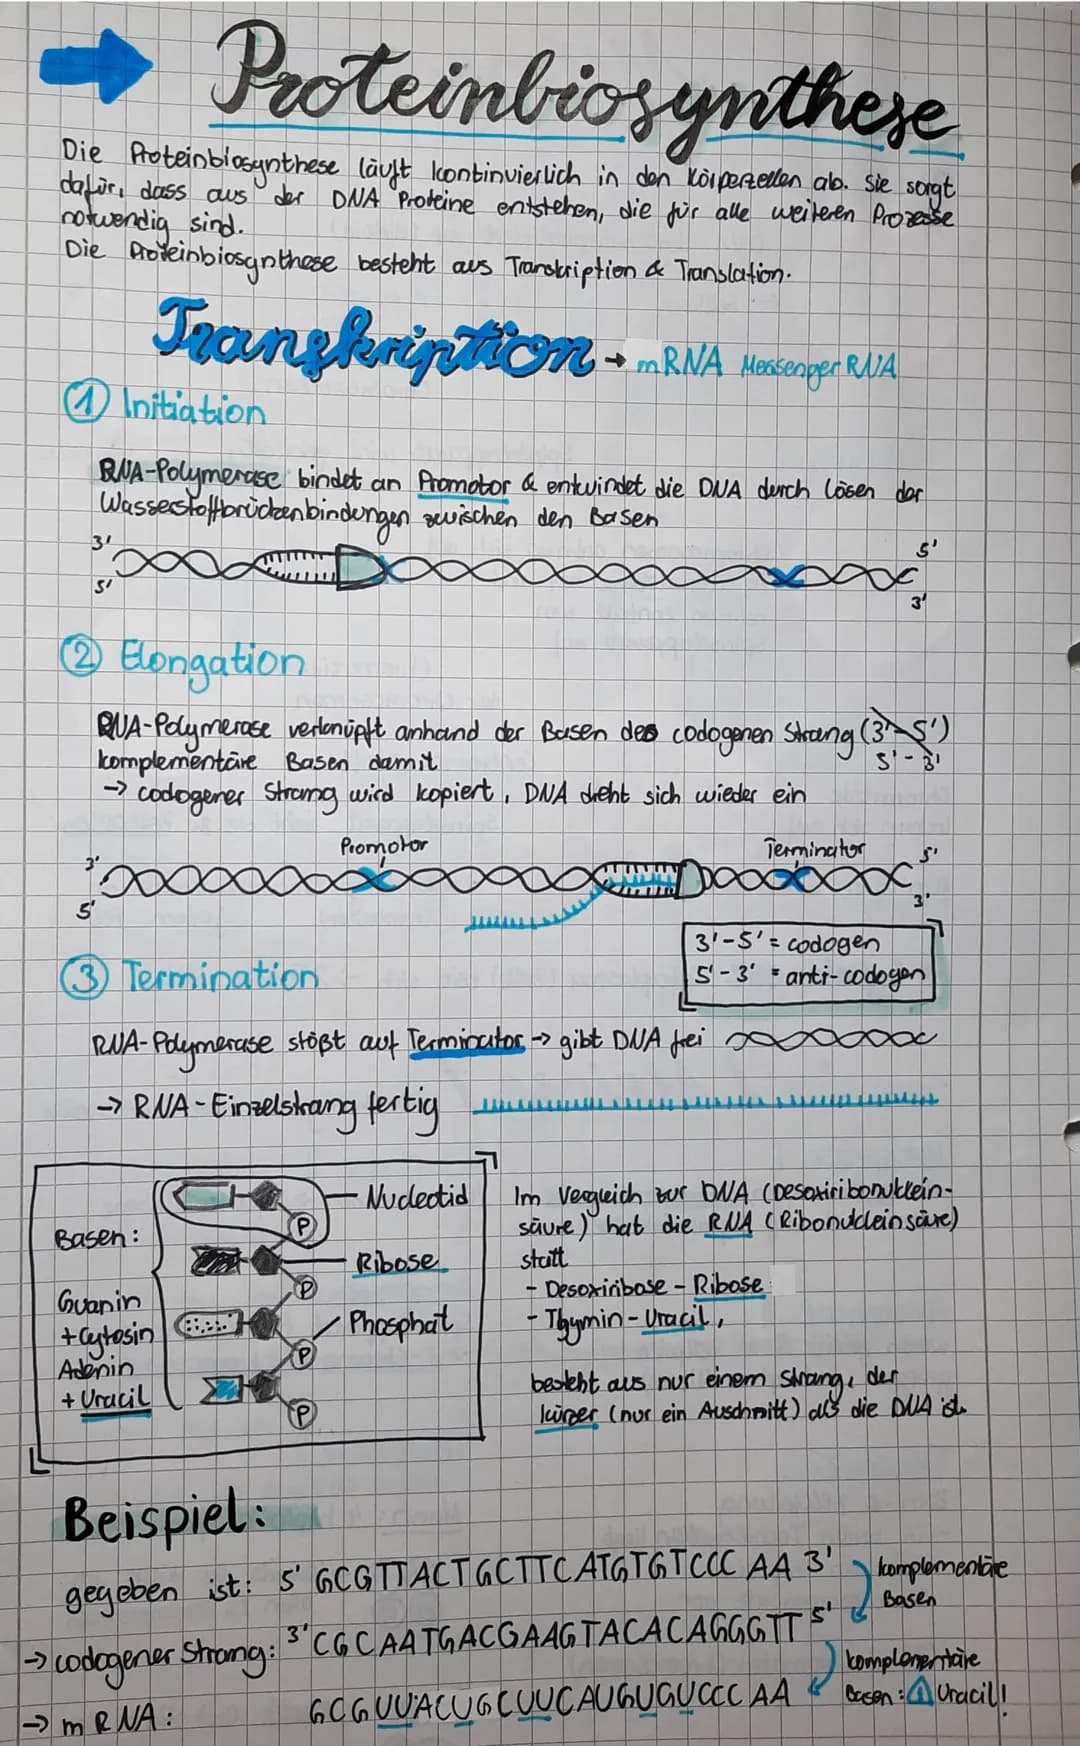 Proteinbiosynthese
Die Proteinbiosynthese läuft kontinuierlich in den Körperzellen ab. Sie sorgt
dafür, dass aus der DNA Proteine entstehen, die für alle weiteren Prozesse
notwendig sind.
Die Proteinbiosynthese besteht aus Transkription & Translation.
Transkription → mRNA Messenger RNA
① Initiation
RNA-Polymerase bindet an Promotor & entwindet die DNA durch lösen der
Wasserstoffbrückenbindungen zwischen den Basen
3' 5'
5' 3'
② Elongation
RNA-Polymerase verknüpft anhand der Basen des codogenen Strang (3'-5')
komplementäre Basen damit 5'-3'
→ codogener Strang wird kopiert, DNA dreht sich wieder ein
Promotor Terminator
3' 5'
5' 3'
3'-5' = codogen
5'-3' = anti-codogen
③ Termination
RNA-Polymerase stößt auf Terminator → gibt DNA frei
→ RNA-Einzelstrang fertig
Basen:
Guanin
+ Cytosin
Adenin
+ Uracil
Nucleotid
Ribose
Phosphat
P
P
P
P
Im Vergleich zur DNA (Desoxiribonuklein-
säure) hat die RNA (Ribonukleinsäure)
statt
- Desoxiribose - Ribose
- Thymin - Uracil,
besteht aus nur einem Strang, der
kürzer (nur ein Auschnitt) als die DNA ist
Beispiel:
gegeben ist: 5' GCGTTACTGCTTCATGTGTCCC AA 3' komplementäre
Basen
→ codogener Strang: 3' CGCAATGACGAAGTACACAGGGTT 5'
komplementäre
→ mRNA: GCGUUACUGCUUCAUGUGUCCC AA Basen: ⚠ Uracil!